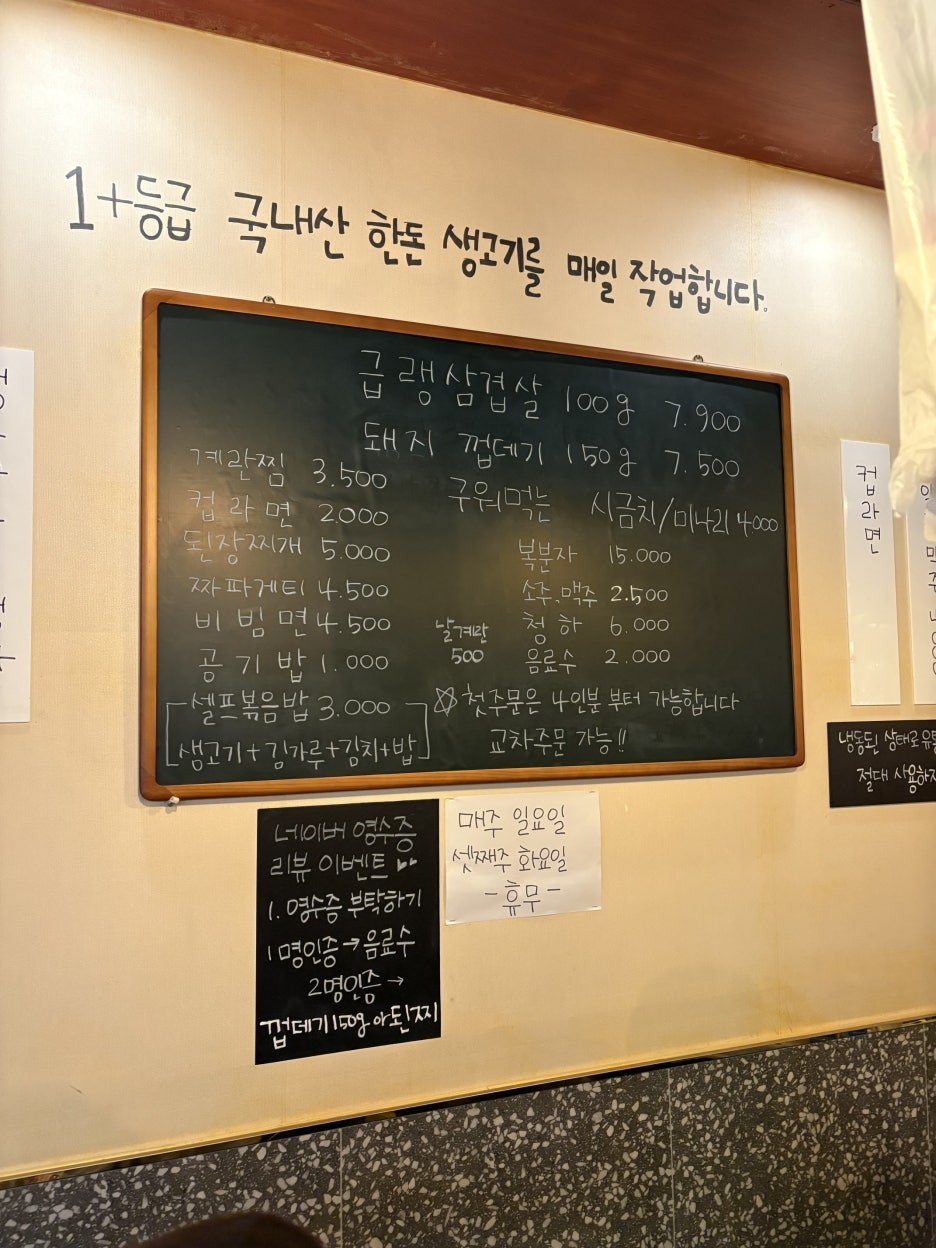 1+등급 국내산 한돈 생고기를 매일 작업합니다.
급랭삼겹살 100g 7.900
돼지 껍데기 150g 7.500
계란찜 3.500
컵라면 2.000
된장찌개 5.000
짜파게티 4.500
비빔면 4.500
공기밥 1.000
셀프볶음밥 3.000
생고기+김가루+김치+밥
구워먹는 시금치/미나리 4.000
복분자 15.000
소주.맥주 2.500
청하 6.000
음료수 2.000
날계란
500
☆ 첫주문은 4인분 부터 가능합니다
교차주문 가능!!
네이버 영수증
리뷰 이벤트
1. 영수증 부탁하기
1명인증→음료수
2명인증→
껍데기150g or 된찌
매주 일요일
셋째주 화요일
-휴무-
컵라면
냉동된 상태로 유
절대 사용하지